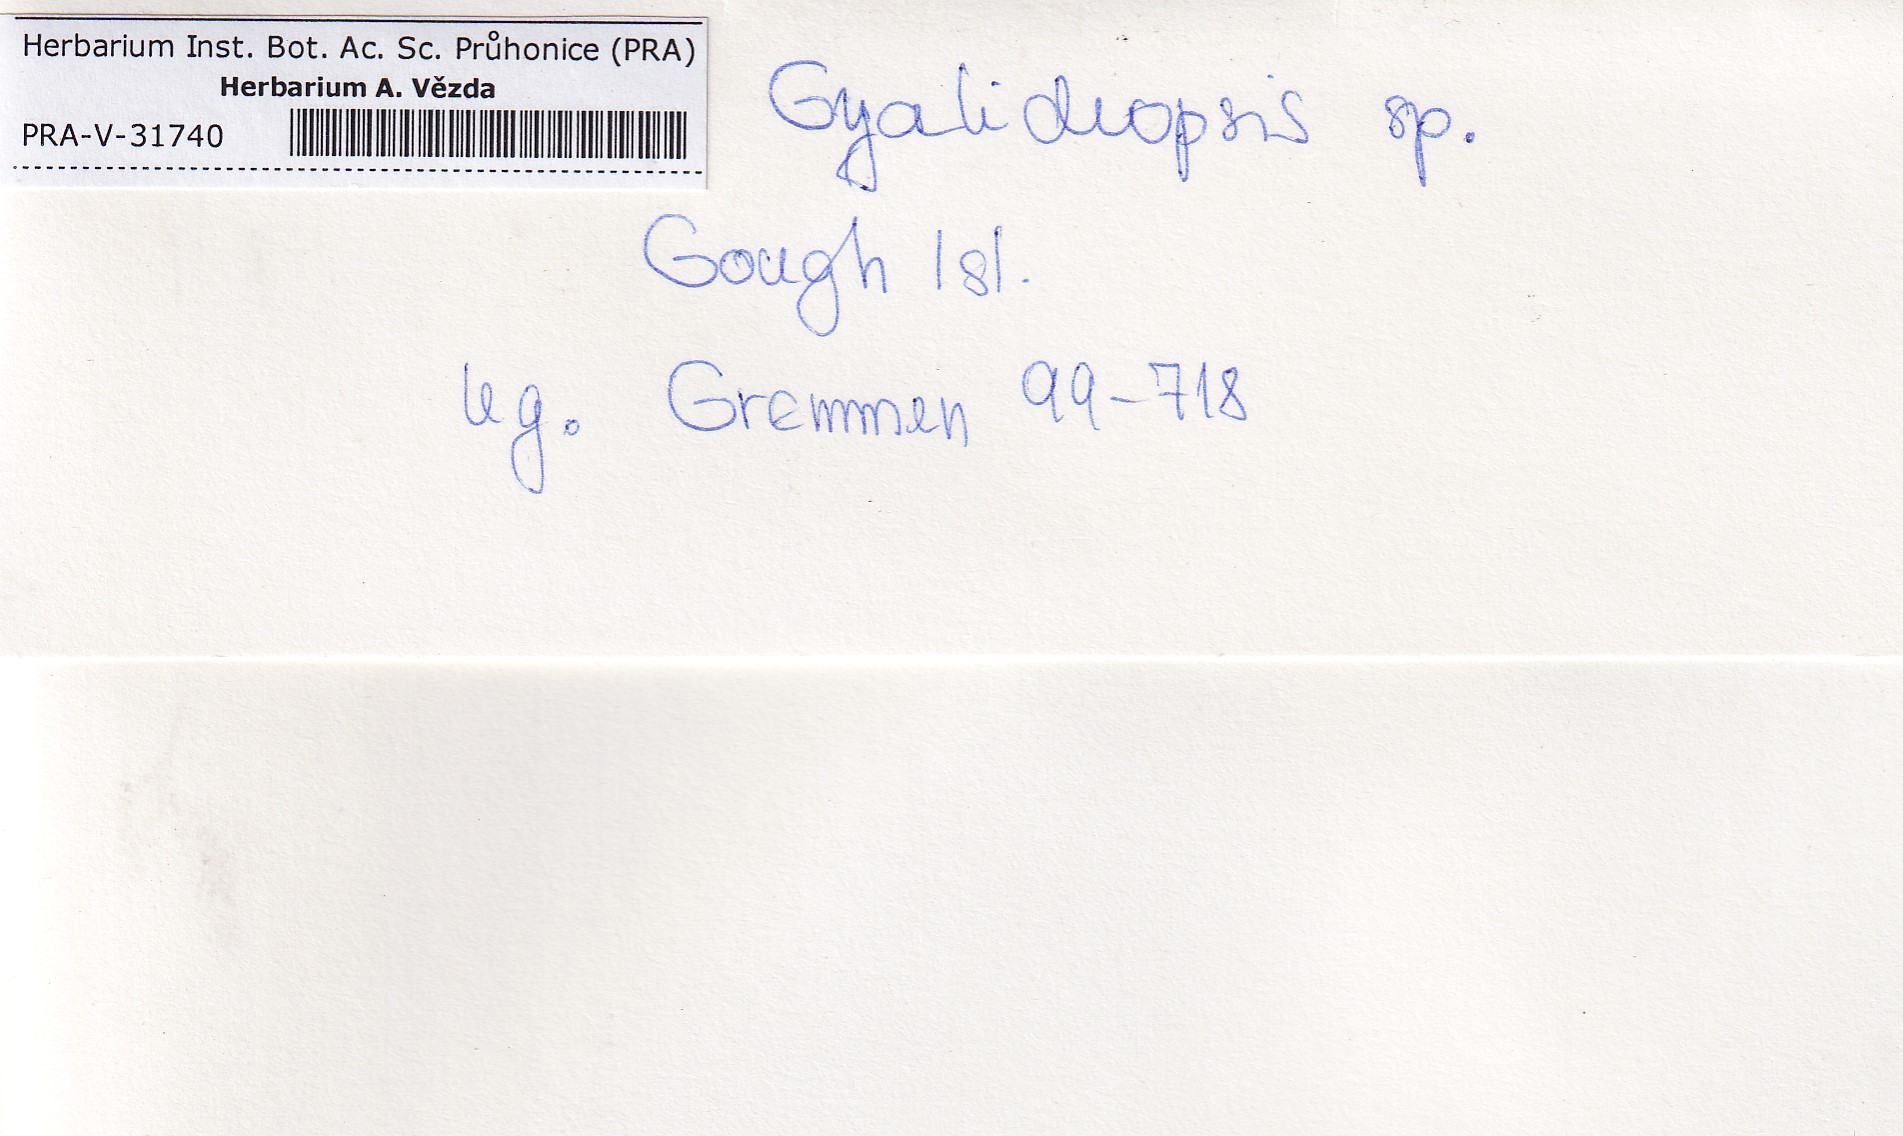 Herbarium Inst. Bot. Ac. Sc. Průhonice (PRA)
Herbarium A. Vězda
PRA-V-31740
Gyalideopsis sp.
Gough Isl.
leg. Gremmen 99-718